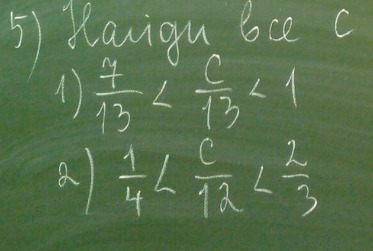 5) Найди все с
1) 7/13 < с/13 < 1
2) 1/4 < с/12 < 2/3